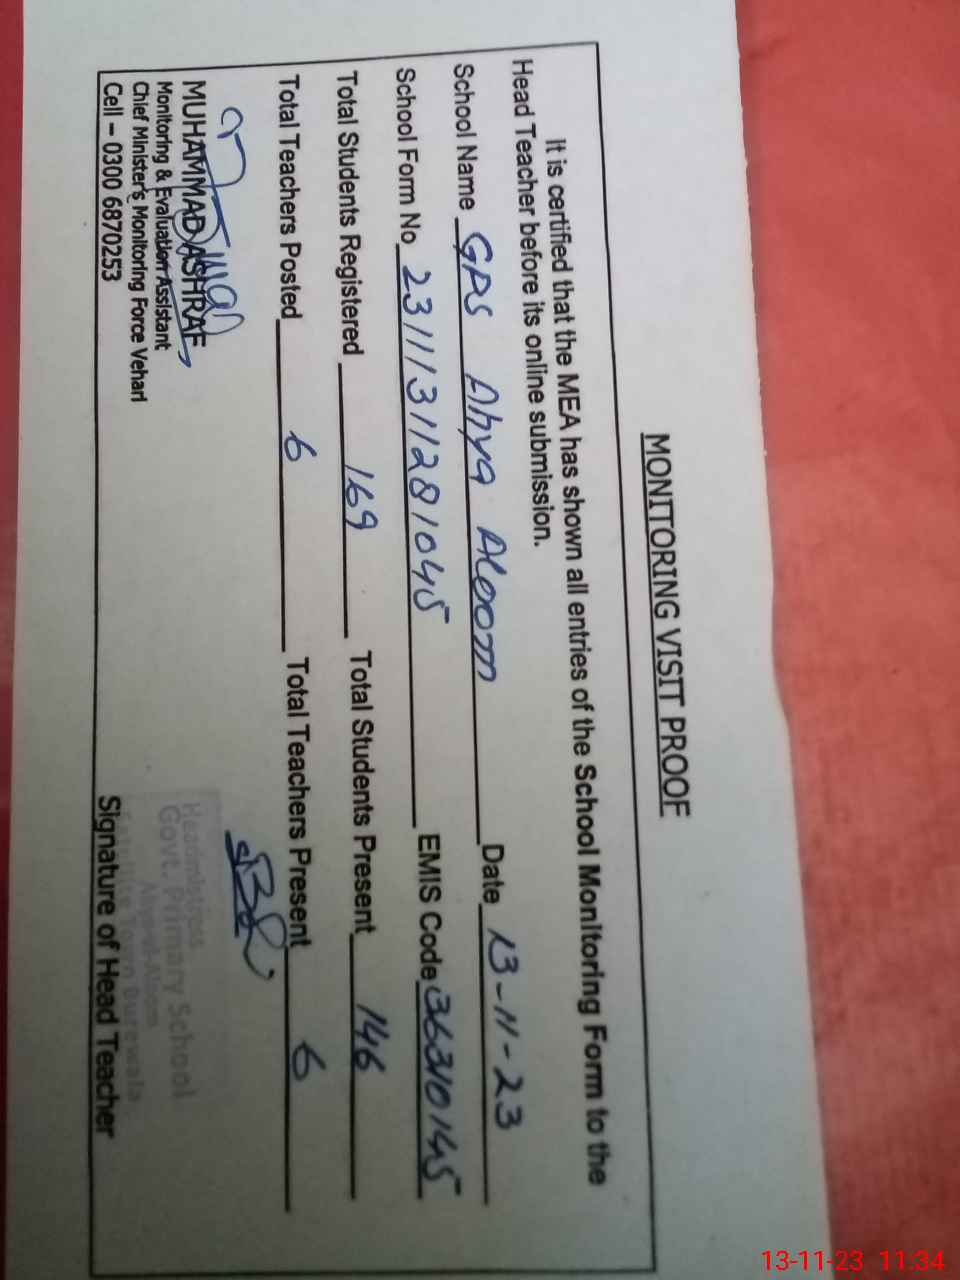 MONITORING VISIT PROOF
It is certified that the MEA has shown all entries of the School Monitoring Form to the
Head Teacher before its online submission.
School Name GPS Ahya Aloom Date 13-11-23
School Form No 23111311281045 EMIS Code 36310145
Total Students Registered 169 Total Students Present 146
Total Teachers Posted 6 Total Teachers Present 6
MUHAMMAD ASHRAF
Monitoring & Evaluation Assistant
Chief Minister's Monitoring Force Vehari
Cell – 0300 6870253
Headmistress
Govt. Primary School
Town Burewala
Signature of Head Teacher
13-11-23 11:34